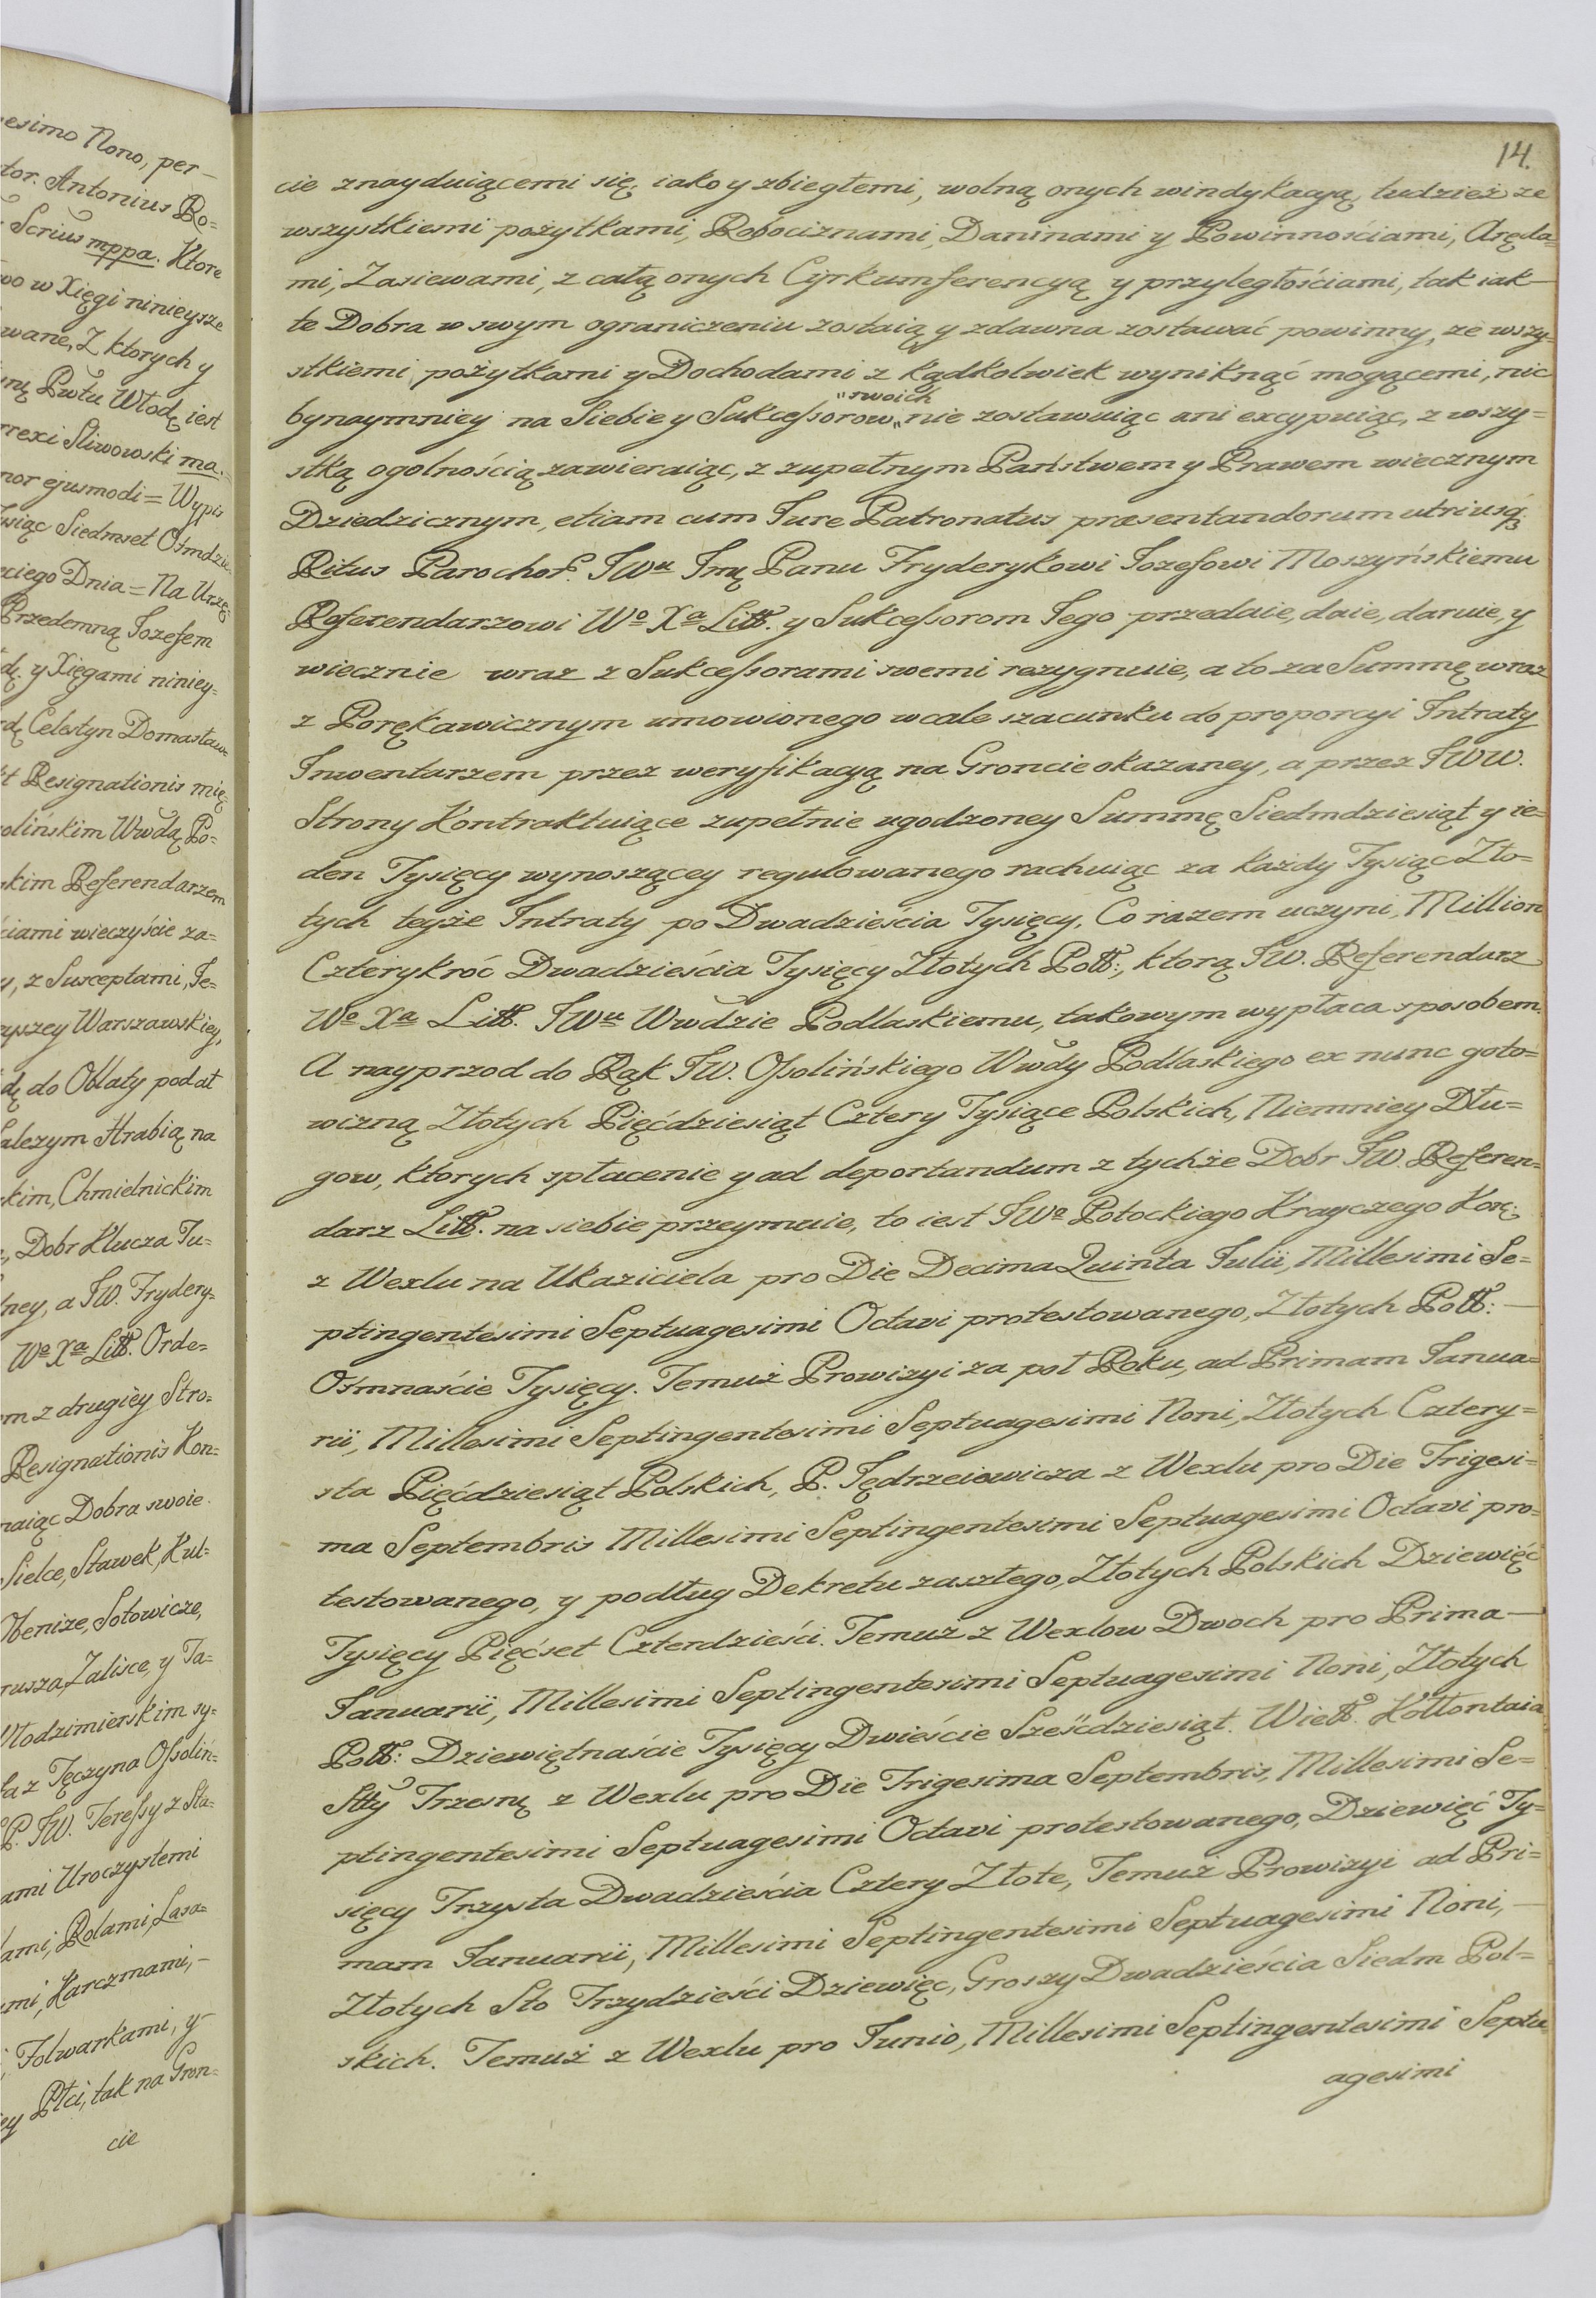 esimo Nono, per-
tor. Antonius Ro=
Scrius mppa. Ktore
wo w Xięgi ninieysze
wane, Z ktorych y
Pwtu Włodę iest
rrexi Sliwowski ma.
nor ejusmodi = Wypis
siąc Siedmset Osmdzie
eciego Dnia = Na Urzę
Przedemną Iozefem
dę. y Xięgami niniey=
dę Celestyn Domasław
t Resignationis mię
olińskim Wwdą Po=
skim Referendarzem
ciami wieczyście za=
y, z Susceptami, Ie=
yszey Warszawskiey,
dę do Oblaty podał
alezym Hrabią na
skim, Chmielnickim
Dobr Klucza Tu=
ney, a JW. Frydery=
Wo Xa Litt. Orde=
m z drugiey Stro=
Resignationis Kon=
naiąc Dobra swoie
Sielce, Stawek, Kul=
Obenize, Sotowicze,
rusza, Zalisce, y Ta=
Włodzimierskim sy=
ła z Tęczyna Ossoliń=
P. JW. Teressy z Sta=
ami Uroczystemi
ami, Rolami, Lasa=
mi, Karczmami,-
Folwarkami, y-
ey Płci, tak na Gron=
cie
14.
cie znayduiącemi się, iako y zbiegłemi, wolną onych windykacyą, tudzież ze
wszystkiemi pożytkami, Robociznami, Daninami y Powinnościami, Aręda=
mi, Zasiewami, z całą onych Cyrkumferencyą y przyległościami, tak iak-
te Dobra w swym ograniczeniu zostaią y zdawna zostawać powinny, ze wszy=
stkiemi pożytkami y Dochodami z kądkolwiek wyniknąć mogącemi, nic
"swoich
bynaymniey na Siebie y Sukcessorow „ nie zostawuiąc ani excypuiąc, z wszy=
stką ogolnością zawieraiąc, z zupełnym Państwem y Prawem wiecznym
Dziedzicznym, etiam cum Jure Patronatus præsentandorum utriusq;
Ritus Parochor. JWu Jmę Panu Fryderykowi Iozefowi Moszyńskiemu
Referendarzowi Wo Xa Litt. y Sukcessorom Iego przedaie, daie, daruie, y
wiecznie wraz z Sukcessorami swemi rezygnuie, a to za Summę wraz
z Porękawicznym umowionego wcale szacunku do proporcyi Intraty
Inwentarzem przez weryfikacyą na Groncie okazaney, a przez JWW.
Strony Kontraktuiące zupełnie ugodzoney Summę Siedmdziesiąt y ie=
den Tysięcy wynoszącey regulowanego rachuiąc za każdy Tysiąc Zło=
tych teyże Intraty po Dwadzieścia Tysięcy, Co razem uczyni, Million
Czterykróc Dwadzieścia Tysięcy Złotych Poltt:, ktorą JW. Referendarz
Wo Xa Litt. JWu Wwdzie Podlaskiemu, takowym wypłaca sposobem.
A nayprzod do Rąk JW. Ossolińskiego Wwdy Podlaskiego ex nunc goto=
wizną Złotych Pięćdziesiąt Cztery Tysiące Polskich, Niemniey Dłu=
gow, ktorych spłacenie y ad deportandum z tychże Dobr JW. Referen=
darz Litt. na siebie przeymuie, to iest JWo Potockiego Krayczego Korę
z Wexlu na Ukaziciela pro Die Decima Quinta Julii, Millesimi Se=
ptingentesimi Septuagesimi Octavi protestowanego, Złotych Poltt:-
Osmnaście Tysięcy. Temuż Prowizyi za poł Roku, ad Primam Janua=
rii, Millesimi Septingentesimi Septuagesimi Noni, Złotych Cztery=
sta Pięćdziesiąt Polskich, P. Iędrzeiowicza z Wexlu pro Die Trigesi=
ma Septembris Millesimi Septingentesimi Septuagesimi Octavi pro=
testowanego, y podług Dekretu zaszłego, Złotych Polskich Dziewięć
Tysięcy Pięćset Czterdzieści. Temuż z Wexlow Dwoch pro Prima-
Januarii, Millesimi Septingentesimi Septuagesimi Noni, Złotych
Poltt: Dziewiętnaście Tysięcy Dwieście Sześćdziesiąt. Wieltt. Kołłontaia
Stty Trzesnę z Wexlu pro Die Trigesima Septembris, Millesimi Se=
ptingentesimi Septuagesimi Octavi protestowanego, Dziewięć Ty=
sięcy Trzysta Dwadzieścia Cztery Złote, Temuż Prowizyi ad Pri=
mam Januarii, Millesimi Septingentesimi Septuagesimi Noni,-
Złotych Sto Trzydzieści Dziewięc, Groszy Dwadzieścia Siedm Pol=
skich. Temuż z Wexlu pro Junio, Millesimi Septingentesimi Septu
agesimi